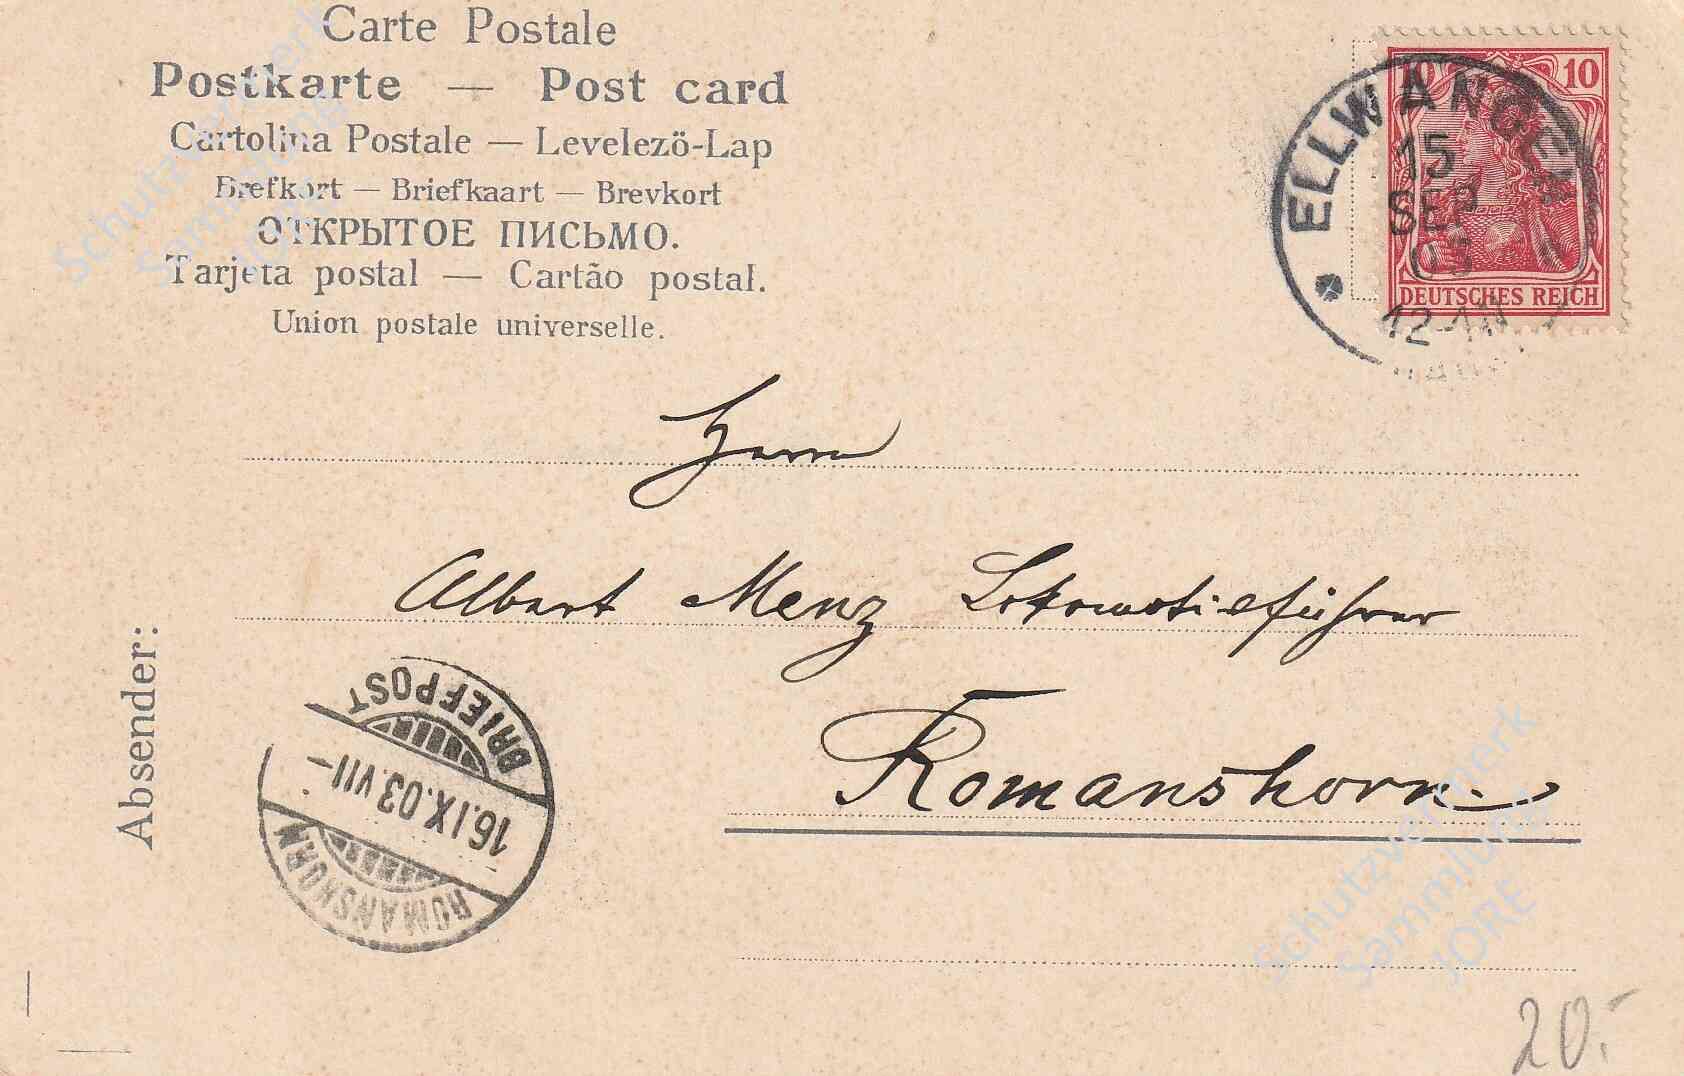 Carte Postale
Postkarte — Post card
Cartolina Postale — Levelező-Lap
Brefkort — Briefkaart — Brevkort
ОТКРЫТОЕ ПИСЬМО.
Tarjeta postal — Cartão postal.
Union postale universelle.
10 10
DEUTSCHES REICH
ELLWANGEN
15
SEP
03
12-1N
Herrn
Albert Menz Lokomotivführer
Romanshorn.
Absender:
BRIEFPOST
16.IX.03.VII–
ROMANSHORN
20.-
Schutzvermerk
Sammlung
JORE
Schutzvermerk
Sammlung
JORE